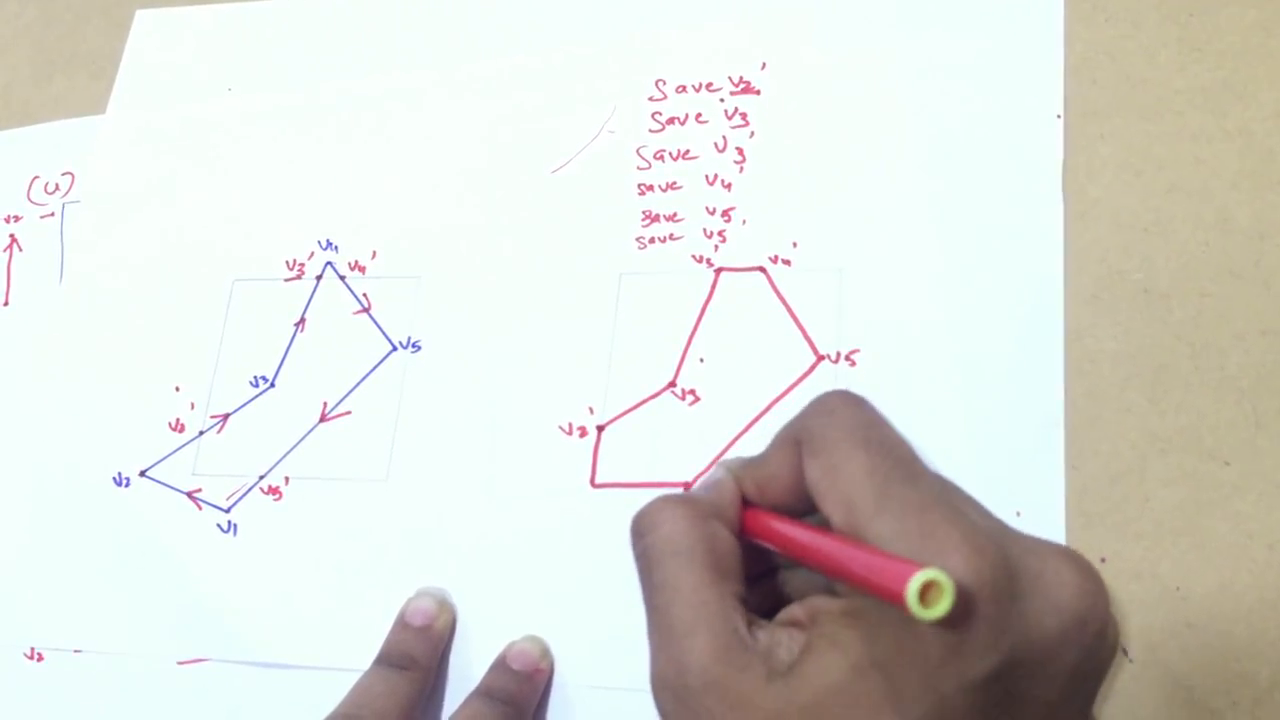 Save v2'
Save v3
Save v3'
save v4'
save v5,
save v5'
(u)
v2
v4
v3' v4'
v5
v3
v2'
v2
v5'
v1
v3' v4'
v5
v3
v2'